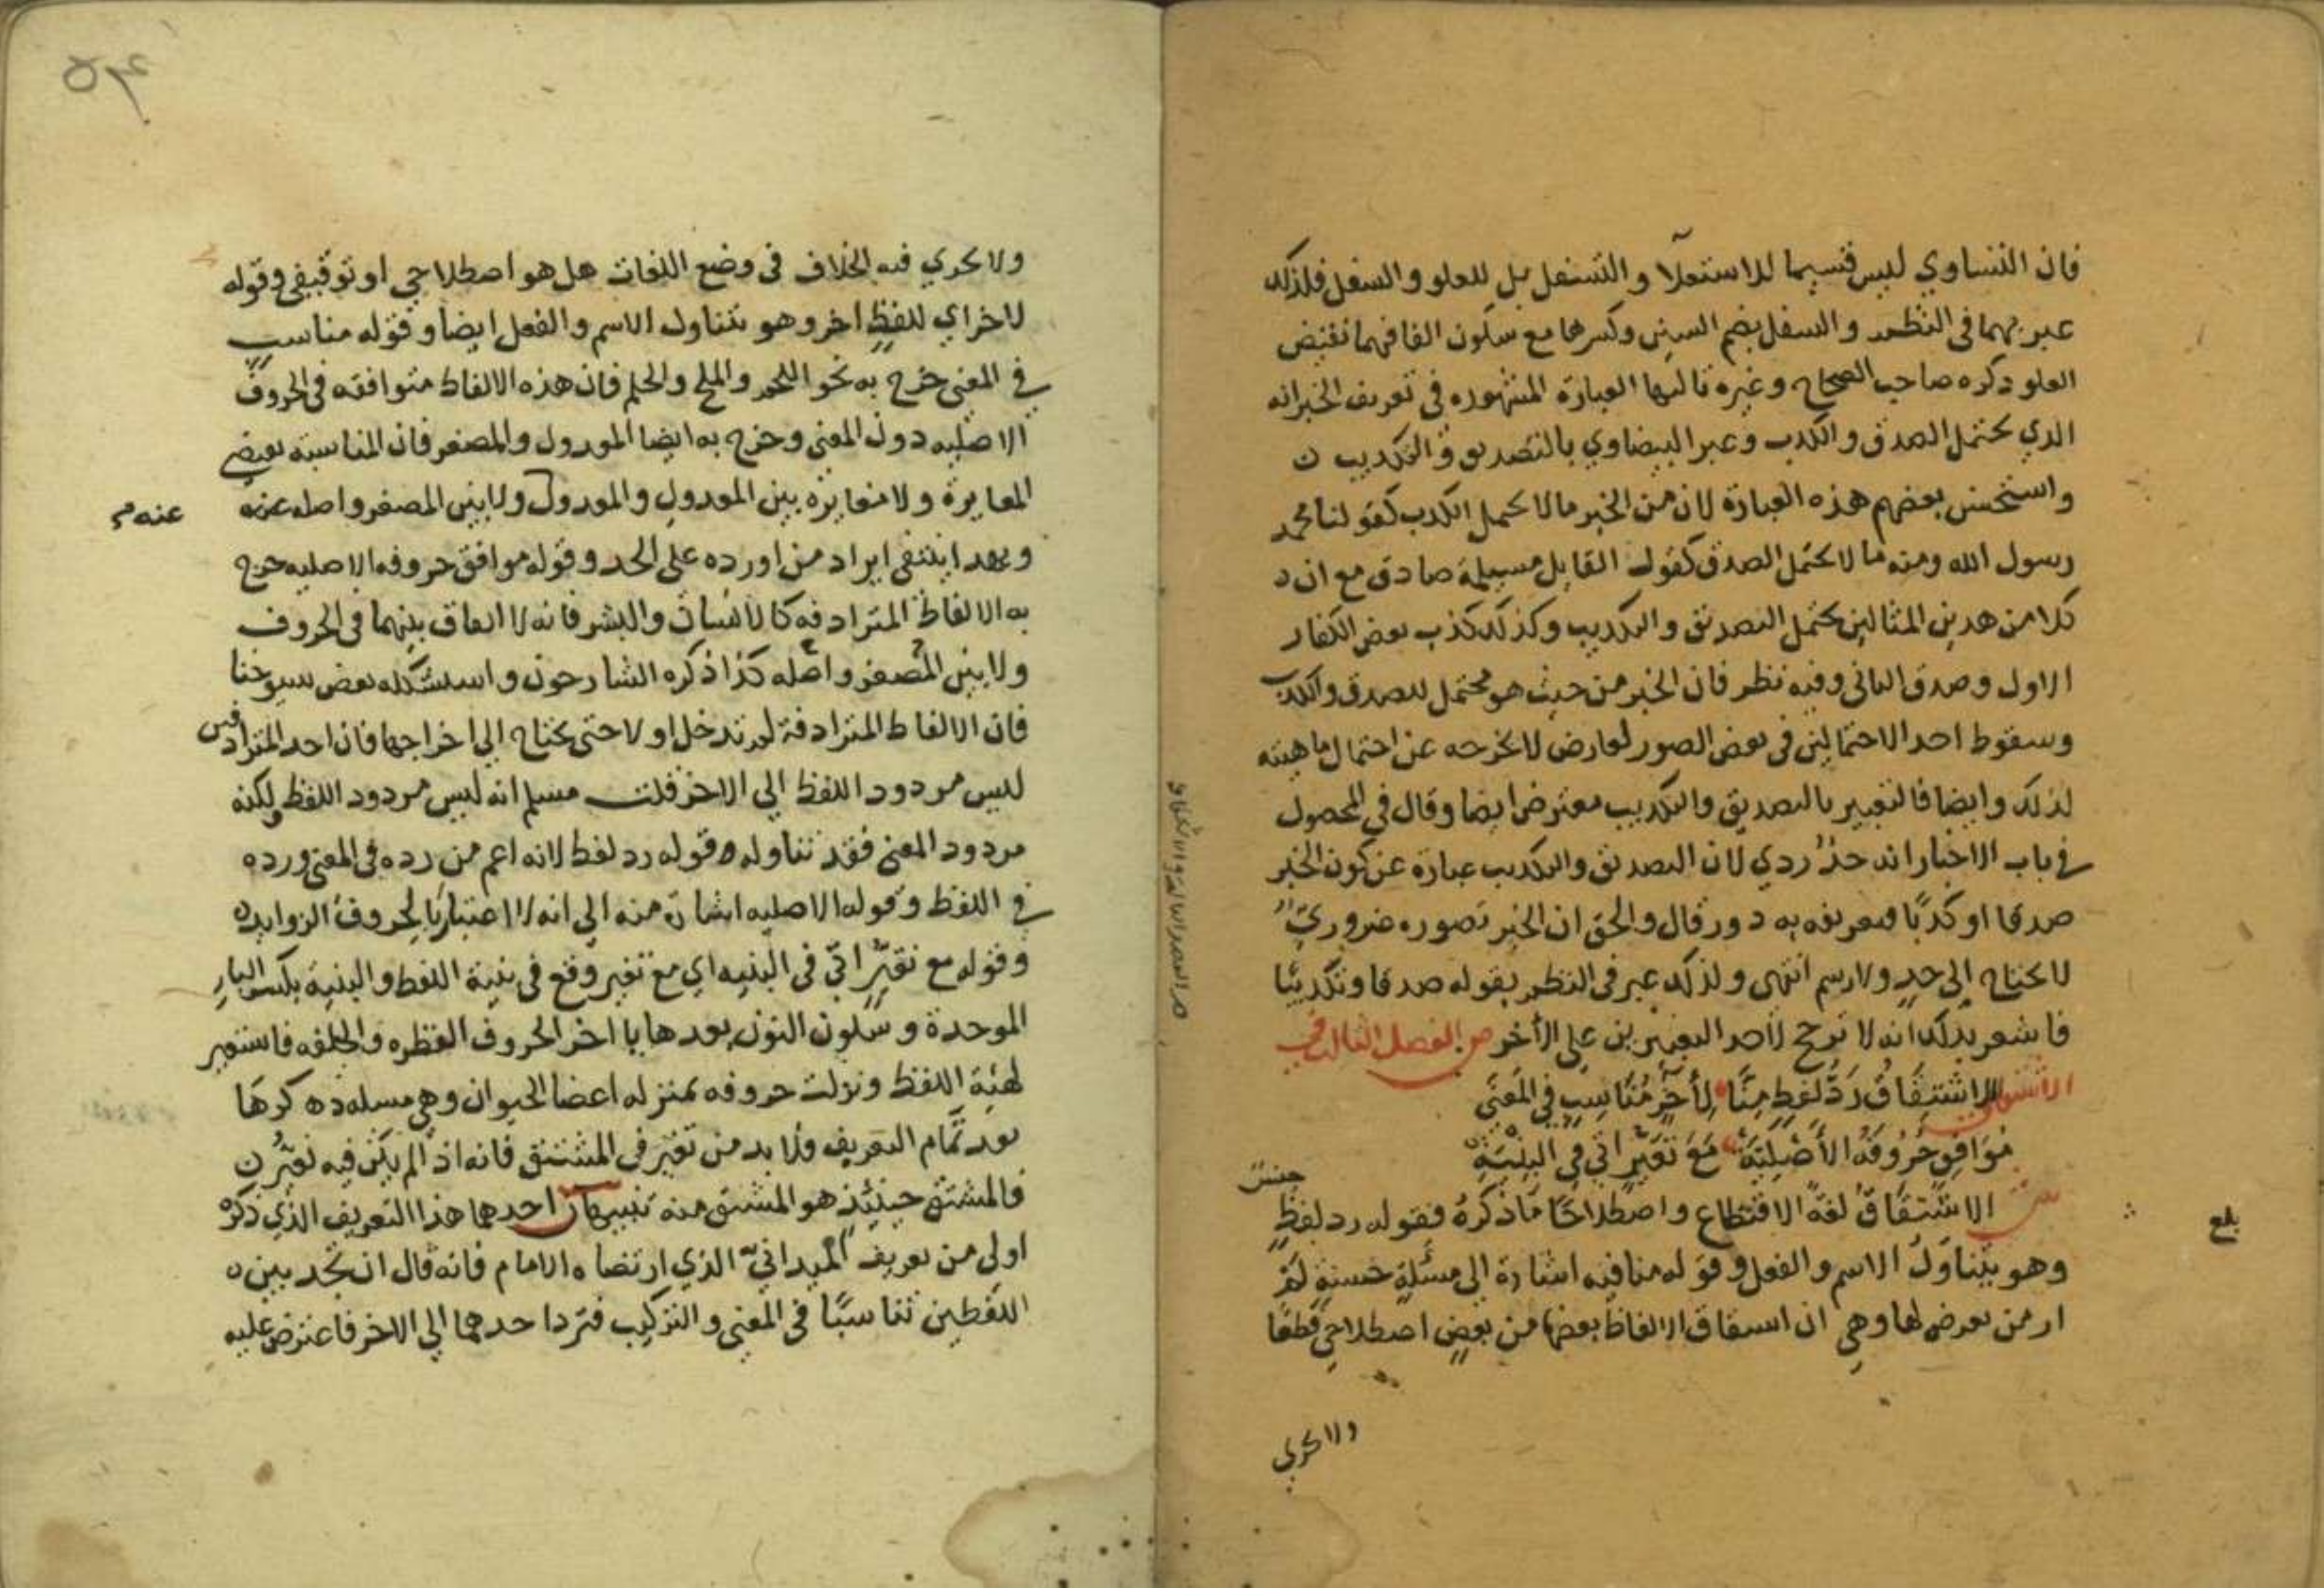 فان التساوي ليس قسيما للاستعلا والتسفل بل للعلو والسفل فلذلك
عبر بهما في النظم والسفل بضم السين وكسرها مع سكون الفا فيهما نقيض
العلو ذكره صاحب الصحاح وغيره ثالثها العبارة المشهوره في تعريف الخبر انه
الذي يحتمل الصدق والكذب وعبر البيضاوي بالتصديق والتكذيب
واستحسن بعضهم هذه العبارة لان من الخبر مالا يحتمل الكذب كقولنا محمد
رسول الله ومنه ما لا يحتمل الصدق كقول القايل مسيلمة صادق مع ان
كلا من هذين المثالين يحتمل التصديق والتكذيب وكذلك كذب بعض الكفار
الاول وصدق الثاني وفيه نظر فان الخبر من حيث هو محتمل للصدق والكذب
وسقوط احد الاحتمالين في بعض الصور لعارض لا يخرجه عن احتمال ماهيته
لذلك وايضا فالتعبير بالتصديق والتكذيب معترض ايضا وقال في المحصول
في باب الاخبار انه حد ردي لان التصديق والتكذيب عبارة عن كون الخبر
صدقا او كذبا فتعريفه به دور قال والحق ان الخبر تصوره ضروري
لا يحتاج الى حد ولا رسم انتهى ولذلك عبر في النظم بقوله صدقا وتكذيبا
فاشعر بذلك انه لا ترجح لاحد التعبيرين على الأخر ص الفصل الثالث في
الاشتقاق
الاشتقاق رد لفظ منا لأخر مناسب في المعنى
موافق حروفه الأصلية مع تغير اتي في البنية
ش الاشتقاق لغة الاقتطاع واصطلاحا ما ذكره فقوله رد لفظ جنس
وهو يتناول الاسم والفعل وقوله منا فيه اشارة الى مسئلة حسنة لم
ار من تعرض لها وهي ان اشتقاق الالفاظ بعضها من بعض اصطلاحي قطعا
بلغ
ولا يجري
ولا يجري فيه الخلاف في وضع اللغات هل هو اصطلاحي او توقيفي وقوله
لاخر اي للفظ اخر وهو يتناول الاسم والفعل ايضا وقوله مناسب
في المعنى خرج به نحو اللحم والملح والحلم فان هذه الالفاظ متوافقه في الحروف
الاصليه دون المعنى وخرج به ايضا المعدول والمصغر فان المناسبة تقتضي
المغايرة ولا مغايرة بين المعدول والمعدول ولا بين المصغر واصله عنه
عنه
وبهذا ينتفي ايراد من اورده على الحد وقوله موافق حروفه الاصليه خرج
به الالفاظ المترادفه كالانسان والبشر فانه لا اتفاق بينهما في الحروف
ولا بين المصغر واصله كذا ذكره الشارحون واستشكله بعض شيوخنا
فان الالفاظ المترادفة لم تدخل اولا حتى يحتاج الي اخراجها فان احد المترادفين
ليس مردود اللفظ الي الاخر قلت مسلم انه ليس مردود اللفظ ولكنه
مردود المعنى فقد تناوله قوله رد لفظ لانه اعم من رده في المعنى ورده
في اللفظ وقوله الاصليه اشارة منه الي انه لا اعتبار بالحروف الزوايد
وقوله مع تغير اتي في البنيه اي مع تغير وقع في بنية اللفظ والبنية بكسر البا
الموحدة وسكون النون بعدها يا اخر الحروف الفطره والخلقه فاستعير
لهيئة اللفظ ونزلت حروفه بمنزله اعضا الحيوان وهي مسله ذكرها
بعد تمام التعريف ولا بد من تغير في المشتق فانه اذا لم يكن فيه تغير
فالمشتق حينئذ هو المشتق منه تنبيهان احدهما هذا التعريف الذي ذكره
اولى من تعريف الميداني الذي ارتضاه الامام فانه قال ان نجد بين
اللفظين تناسبا في المعنى والتركيب فترد احدهما الي الاخر فاعترض عليه